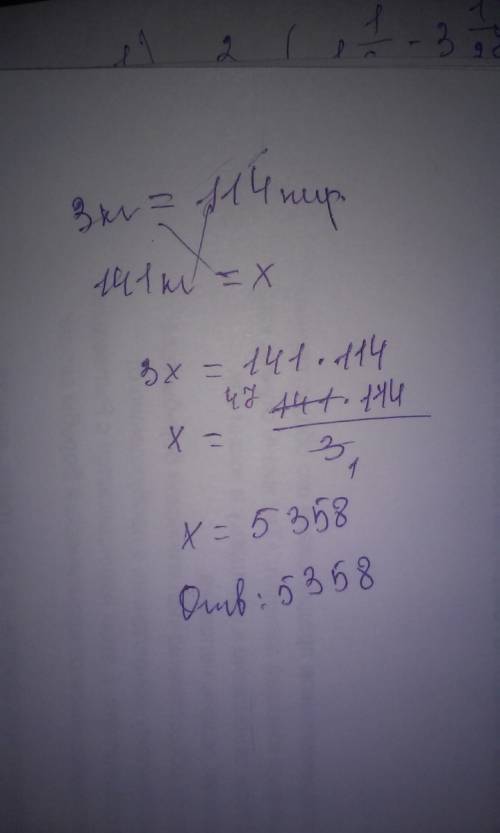 1) 2 ( 1 1/2 - 3 1/28
3кг = 114 пир.
141кг = x
3x = 141 · 114
x = 47 141 · 114 / 3 1
x = 5358
Отв: 5358